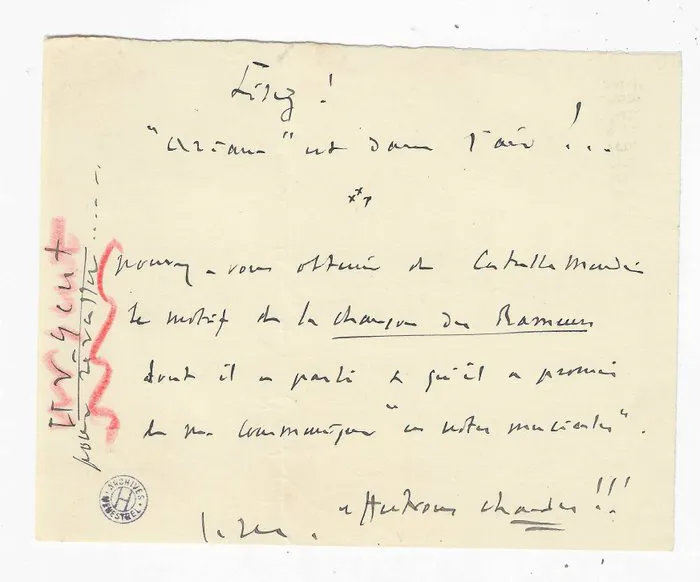 Lisez !
"Ariane" est dans l'air !..
pouvez-vous obtenir de Catulle Mendès
le motif de la chanson des Rameurs
dont il a parlé & qu'il a promis
de me communiquer "en notes musicales".
!!!
Urgent
pour
ARCHIVES
H
MENESTREL